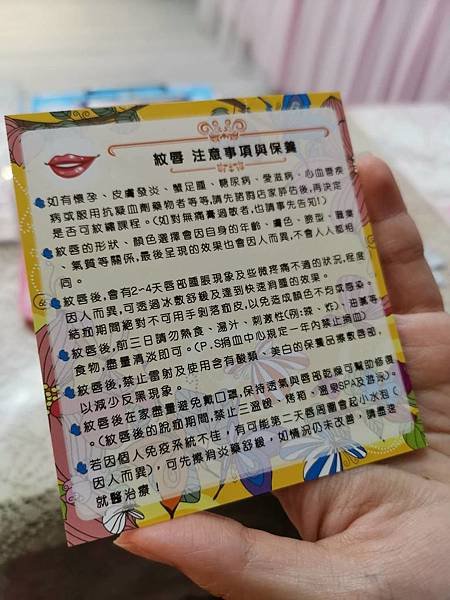 紋唇 注意事項與保養
如有懷孕、皮膚發炎、蟹足腫、糖尿病、愛滋病、心血管疾
病或服用抗凝血劑藥物者等等,請先諮詢店家評估後,再決定
是否可紋繡課程。(如對無痛膏過敏者,也請事先告知!)
紋唇的形狀、顏色選擇會因自身的年齡、膚色、臉型、職業
、氣質等關係,最後呈現的效果也會因人而異,不會人人都相
同。
紋唇後,會有2-4天唇部腫脹現象及些微疼痛不適的狀況,程度
因人而異,可透過冰敷舒緩及達到快速消腫的效果。
結痂期間絕對不可用手剝落痂皮,以免造成顏色不均或感染。
紋唇後,前三日請勿熱食、湯汁、刺激性(例:辣、炸)、油膩等
食物,盡量清淡即可。(P.S捐血中心規定一年內禁止捐血)
紋唇後,禁止雷射及使用含有酸類、美白的保養品擦敷唇部,
以減少反黑現象。
紋唇後在家盡量避免戴口罩,保持透氣與唇部乾燥可幫助修復
。(紋唇後的脫痂期間,禁止三溫暖、烤箱、溫泉SPA及游泳)
若因個人免疫系統不佳,有可能第二天唇周圍會起小水泡(
因人而異),可先擦消炎藥舒緩,如情況仍未改善,請盡速
就醫治療!